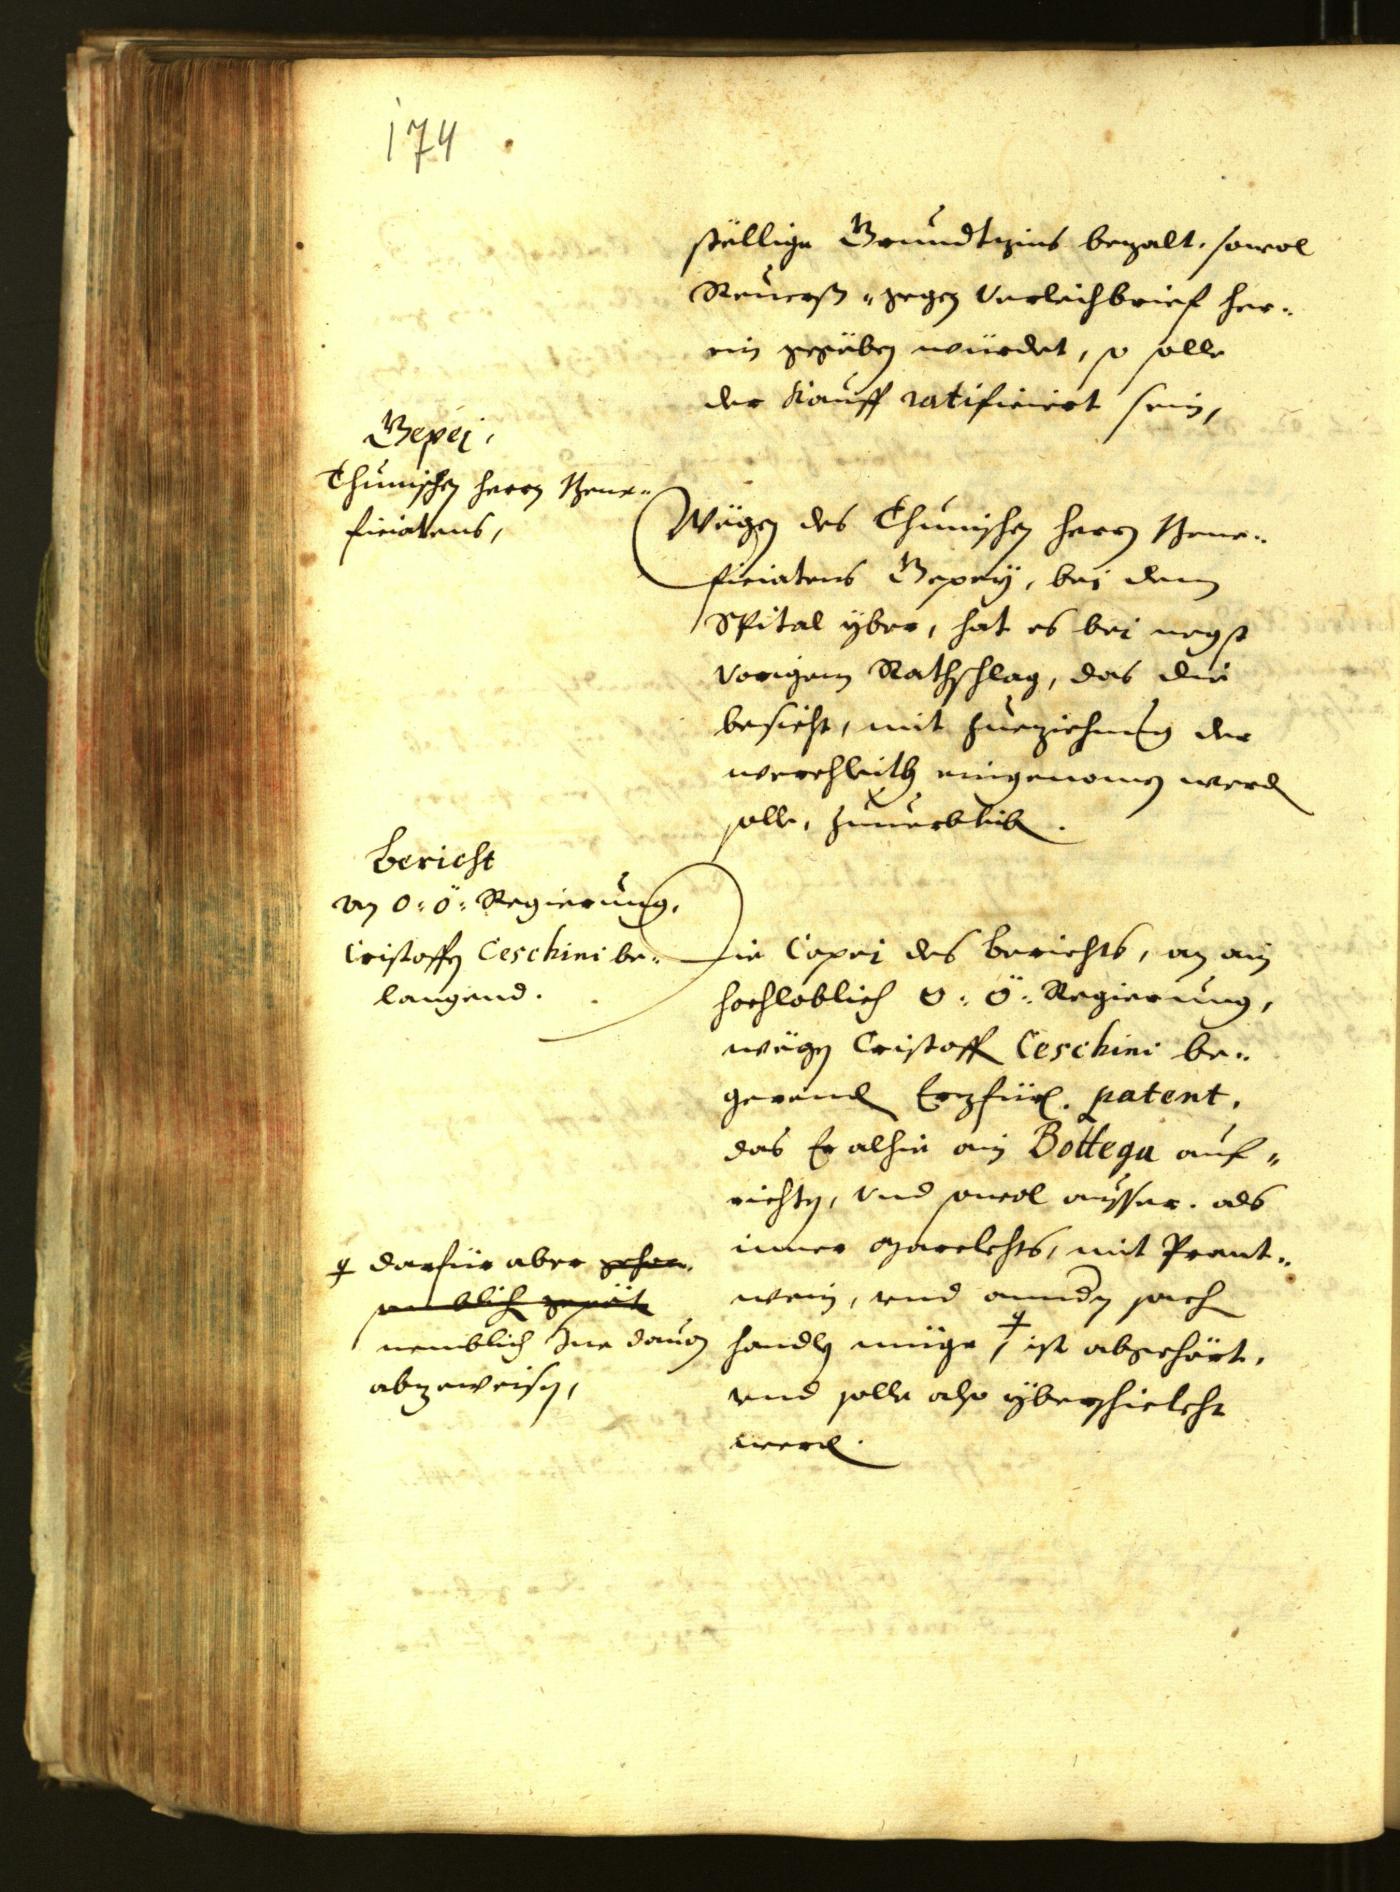 174
ställige Grundtzins bezalt, sowol
Reuerß, gegen Verleichbrief her„
ein gegeben würdet, so solle
der Kauff ratificiert sein,
Gepeÿ,
Thunischen herrn Bene„
ficiatens,
Wägen des Thunischen herrn Bene„
ficiatens Gepeÿ, bei dem
Spital yber, hat es bei negst
Vorigem Rathschlag, das die
besicht, mit Zueziehung der
werchleüth eingenomen werden
solle, Zuuerbleiben.
Bericht
an O: Ö: Regierung,
Cristoffen Ceschini be„
langend.
Die Copei des berichts, an ain
hochloblich O: Ö: Regierung,
wägen Cristoff Ceschini be„
gerend Erzfürl. patent,
das Er alhie ain Bottega auf„
richten, Vnd sowol ausser, als
inner Marckhts, mit Prant„
wein, vnd andern sachen
handlen müge, ist abgehört,
vnd solle also yberschickht
werden.
darfür aber
nemblich Ine dauon
abzuweisen,